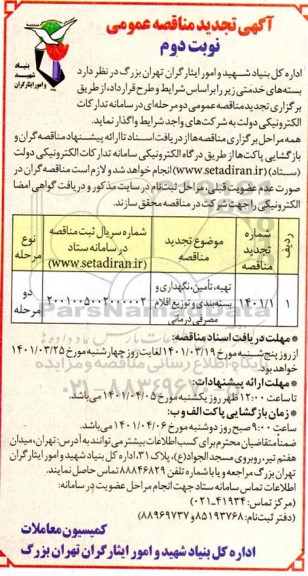 آگهی تجدید مناقصه عمومی
نوبت دوم
بنیاد
شهید
و امور ایثارگران
اداره کل بنیاد شهید و امور ایثارگران تهران بزرگ در نظر دارد
بسته‌های خدمتی زیر را بر اساس شرایط و طرح قرارداد، از طریق
برگزاری تجدید مناقصه عمومی دو مرحله‌ای در سامانه تدارکات
الکترونیکی دولت به شرکت‌های واجد شرایط واگذار نماید.
همه مراحل برگزاری مناقصه‌ها از دریافت اسناد تا ارائه پیشنهاد مناقصه‌گران و
بازگشایی پاکت‌ها از طریق درگاه الکترونیکی سامانه تدارکات الکترونیکی دولت
(ستاد) (www.setadiran.ir) انجام خواهد شد و لازم است مناقصه‌گران در
صورت عدم عضویت قبلی، مراحل ثبت‌نام در سایت مذکور و دریافت گواهی امضا
الکترونیکی را جهت شرکت در مناقصه محقق سازند.
ردیف
شماره تجدید مناقصه
موضوع تجدید مناقصه
شماره سریال ثبت مناقصه در سامانه ستاد (www.setadiran.ir)
نوع مرحله
۱
۱۴۰۱/۱
تهیه، تأمین، نگهداری و بسته‌بندی و توزیع اقلام مصرفی درمانی
۲۰۰۱۰۰۵۰۰۲۰۰۰۰۰۲
دو مرحله
* مهلت دریافت اسناد مناقصه:
از روز پنج‌شنبه مورخ ۱۴۰۱/۰۳/۱۹ لغایت روز چهارشنبه مورخ ۱۴۰۱/۰۳/۲۵
خواهد بود.
* مهلت ارائه پیشنهادات:
تا ساعت ۱۲:۰۰ ظهر روز یکشنبه مورخ ۱۴۰۱/۰۴/۰۵ می‌باشد.
* زمان بازگشایی پاکت الف و ب:
ساعت ۹:۰۰ صبح روز دوشنبه مورخ ۱۴۰۱/۰۴/۰۶ می‌باشد.
ضمناً متقاضیان محترم برای کسب اطلاعات بیشتر می‌توانند به آدرس: تهران، میدان
هفتم تیر، روبروی مسجد الجواد(ع)، پلاک ۳۱، اداره کل بنیاد شهید و امور ایثارگران
تهران بزرگ مراجعه و یا با شماره تلفن ۸۸۸۴۶۸۲۹ تماس حاصل نمایند.
اطلاعات تماس سامانه ستاد جهت انجام مراحل عضویت در سامانه:
(مرکز تماس: ۴۱۹۳۴-۰۲۱)
(دفتر ثبت‌نام: ۸۵۱۹۳۷۶۸ و ۸۸۹۶۹۷۳۷)
کمیسیون معاملات
اداره کل بنیاد شهید و امور ایثارگران تهران بزرگ